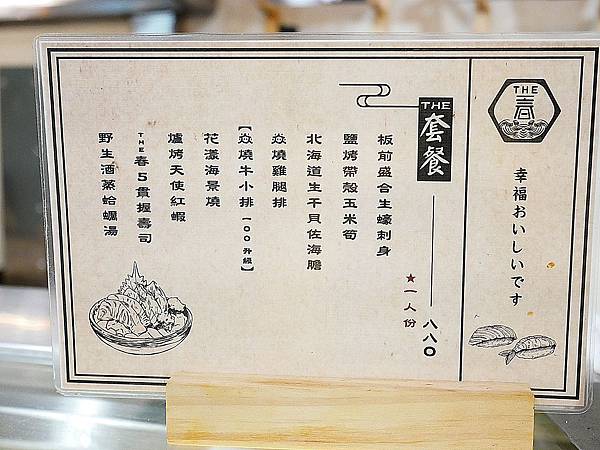 THE
春
幸福おいしいです
THE
套餐
八八〇
★一人份
板前盛合生蠔刺身
鹽烤帶殼玉米筍
北海道生干貝佐海膽
焱燒雞腿排
【焱燒牛小排 一〇〇升級】
花漾海景燒
爐烤天使紅蝦
THE春5貫握壽司
野生酒蒸蛤蠣湯